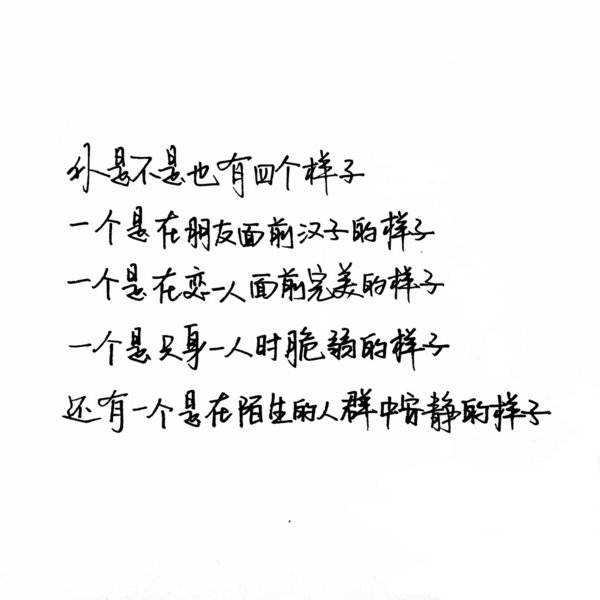 你是不是也有四个样子
一个是在朋友面前汉子的样子
一个是在恋人面前完美的样子
一个是只身一人时脆弱的样子
还有一个是在陌生的人群中安静的样子